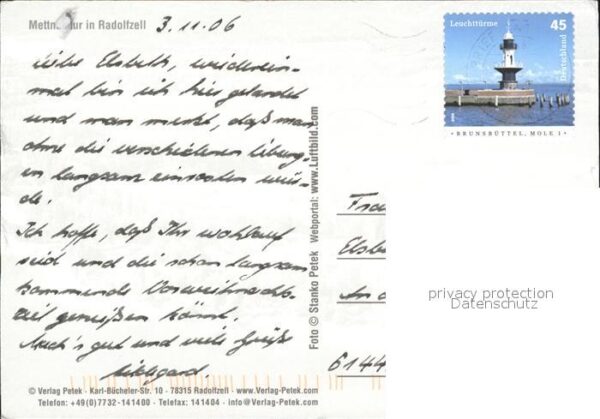 Mettnau-Kur in Radolfzell
3.11.06
Liebe Elsbeth, wiederein-
mal bin ich hier gelandet
und man merkt, daß man
ohne die verschiedenen Übung-
en langsam einrosten wür-
de.
Ich hoffe, daß Ihr wohlauf
seid und die schon langsam
kommende Vorweihnachts-
zeit genießen könnt.
Mach's gut und viele Grüße
Hildegard.
© Verlag Petek · Karl-Bücheler-Str. 10 · 78315 Radolfzell · www.Verlag-Petek.com
Telefon: +49(0)7732-141400 · Telefax: 141404 · info@Verlag-Petek.com
Foto © Stanko Petek Webportal: www.Luftbild.com
Leuchttürme 45
Deutschland
2006
BRUNSBÜTTEL, MOLE 1
Frau
Elsbe
An d
6144
privacy protection
Datenschutz